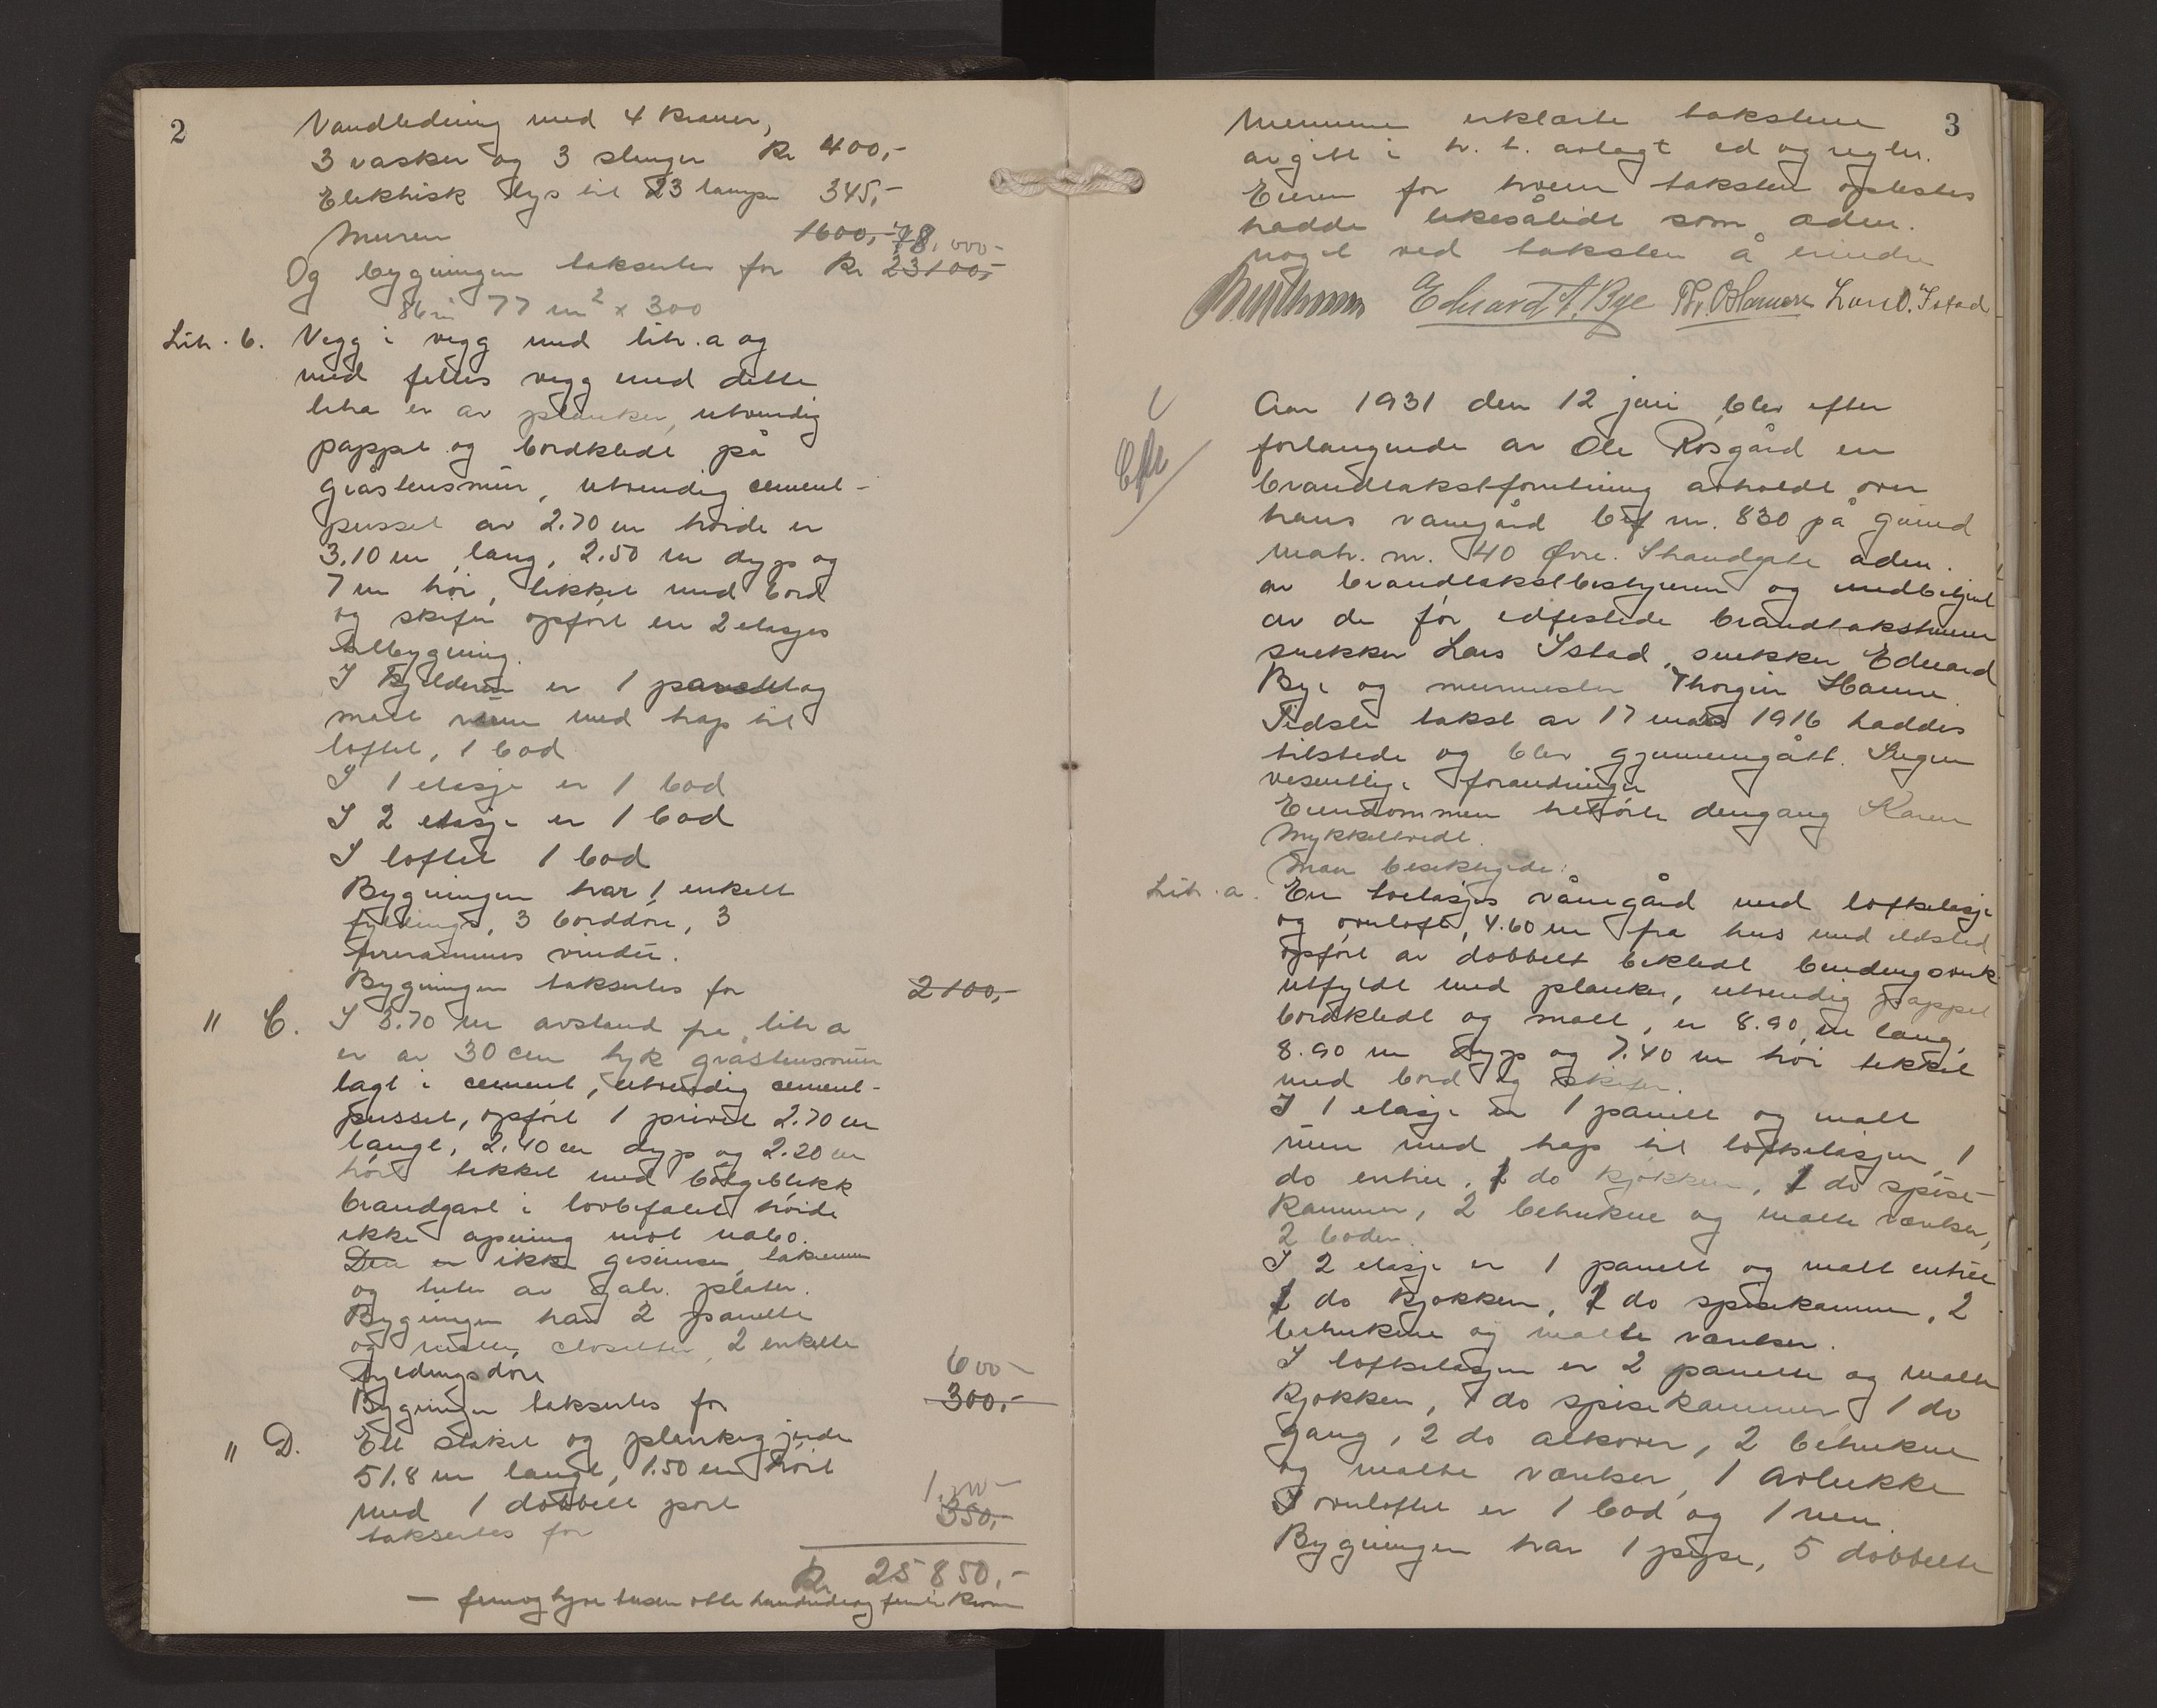 2
Vandledning med 4 kraner,
3 vasker og 3 slenger Kr 400,-
Elektrisk lys til 23 lamper 345,-
Muren 1600,- 78,000-
Og bygningen takseres for Kr 23100,-
86 m 77 m² x 300
Litr. b. Vegg i vegg med litr. a og
med felles vegg med dette
litra er av planker, utvendig
pappet og bordklædt på
gråstensmur, utvendig cement-
pusset av 2.70 m høide er
3.10 m lang, 2.50 m dyp og
7 m høi, tekket med bord
og skifer opført en 2 etasjes
tilbygning.
I kjelderen er 1 panelt og
malt rum med trap til
loftet, 1 bod
I 1 etasje er 1 bod
I 2 etasje er 1 bod
I loftet 1 bod
Bygningen har 1 enkelt
fyldings, 3 borddøre, 3
firerammes vinduer.
Bygningen takseres for 2100,-
" C. I 3.70 m avstand fra litr a
er av 30 cm tyk gråstensmur
lagt i cement, utvendig cement-
pusset, opført 1 privet 2.70 m
langt, 2.40 m dyp og 2.20 m
høit tekket med bølgeblikk
brandgavl i lovbefalet høide
ikke åpning mot nabo.
Der er ikke gesimser, takrenner
og luter av galv. plater.
Bygningen har 2 panelte
og malte closetter, 2 enkelte
fyldingsdøre 600-
Bygningen takseres for 300,-
" D. Ett stakit og plankegjerde
51.8 m langt, 1.50 m høit
med 1 dobbelt port 350,-
takseres for
Kr 25850,-
— femogtyve tusen otte hundrede og femti kroner
3
Mennene erklærte taksten
avgitt i h. t. avlagt ed og regler.
Eieren for hvem taksten oplestes
hadde likesålidt som aden.
noget ved taksten å erindre
Eduard A. Bye Th. O Hamre Lars O. Istad
Aar 1931 den 12 juni blev efter
forlangende av Ole Røsgård en
brandtakstforretning avholdt over
hans vånegård brf nr. 830 på grund
matr. nr. 40 Øvre. Strandgate aden.
av brandtakstbestyreren og medbetjent
av de før edfestede brandtakstmenn
snekker Lars Istad, snekker Eduard
Bye og murmester Thorgeir Hamre
Sidste takst av 17 mars 1916 haddes
tilstede og blev gjennemgått. Ingen
vesentlige forandringer
Eiendommen tilhørte dengang Karen
Mykkeltvedt.
Man besiktigede:
Litr. a. En toetasjes vånegård med loftsetasje
og ovnloft, 4.60 m fra hus med ildsted
opført av dobbelt beklædt bindingsverk
utfyldt med planker, utvendig pappet
bordklædt og malt, er 8.90 m lang,
8.90 m dyp og 7.40 m høi tekket
med bord og skifer.
I 1 etasje er 1 panelt og malt
rum med trap til loftsetasjen, 1
do entrée, 1 do kjøkken, 1 do spise-
kammer, 2 betrukne og malte værelser,
2 boder.
I 2 etasje er 1 panelt og malt entrée
1 do kjøkken, 1 do spisekammer, 2
betrukne og malte værelser.
I loftsetasjen er 2 panelte og malte
kjøkken, 1 do spisekammer 1 do
gang, 2 do alkover, 2 betrukne
og malte værelser, 1 avlukke
I ovnloftet er 1 bod og 1 rum.
Bygningen har 1 pipe, 5 dobbelte